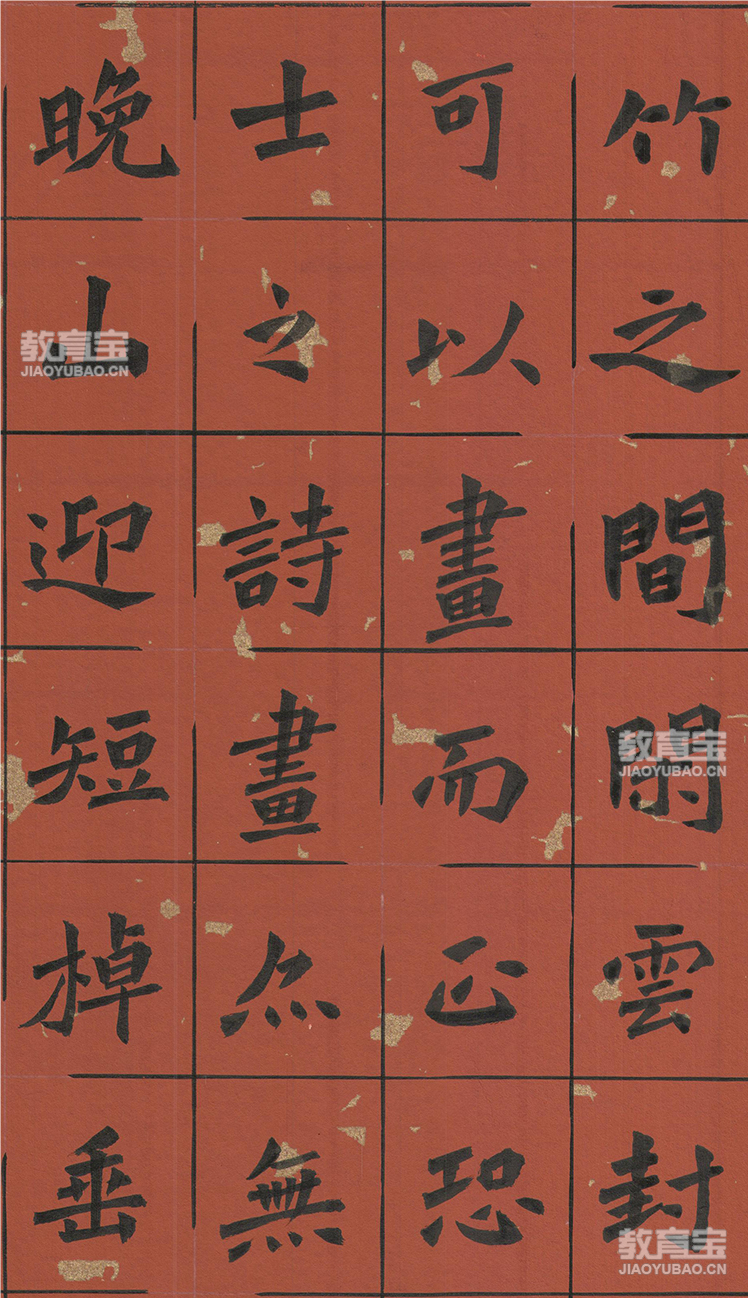 竹之間閑雲封
可以畫而正恐
士之詩畫亦無
晚山迎短棹垂
教育宝
JIAOYUBAO.CN
教育宝
JIAOYUBAO.CN
教育宝
JIAOYUBAO.CN